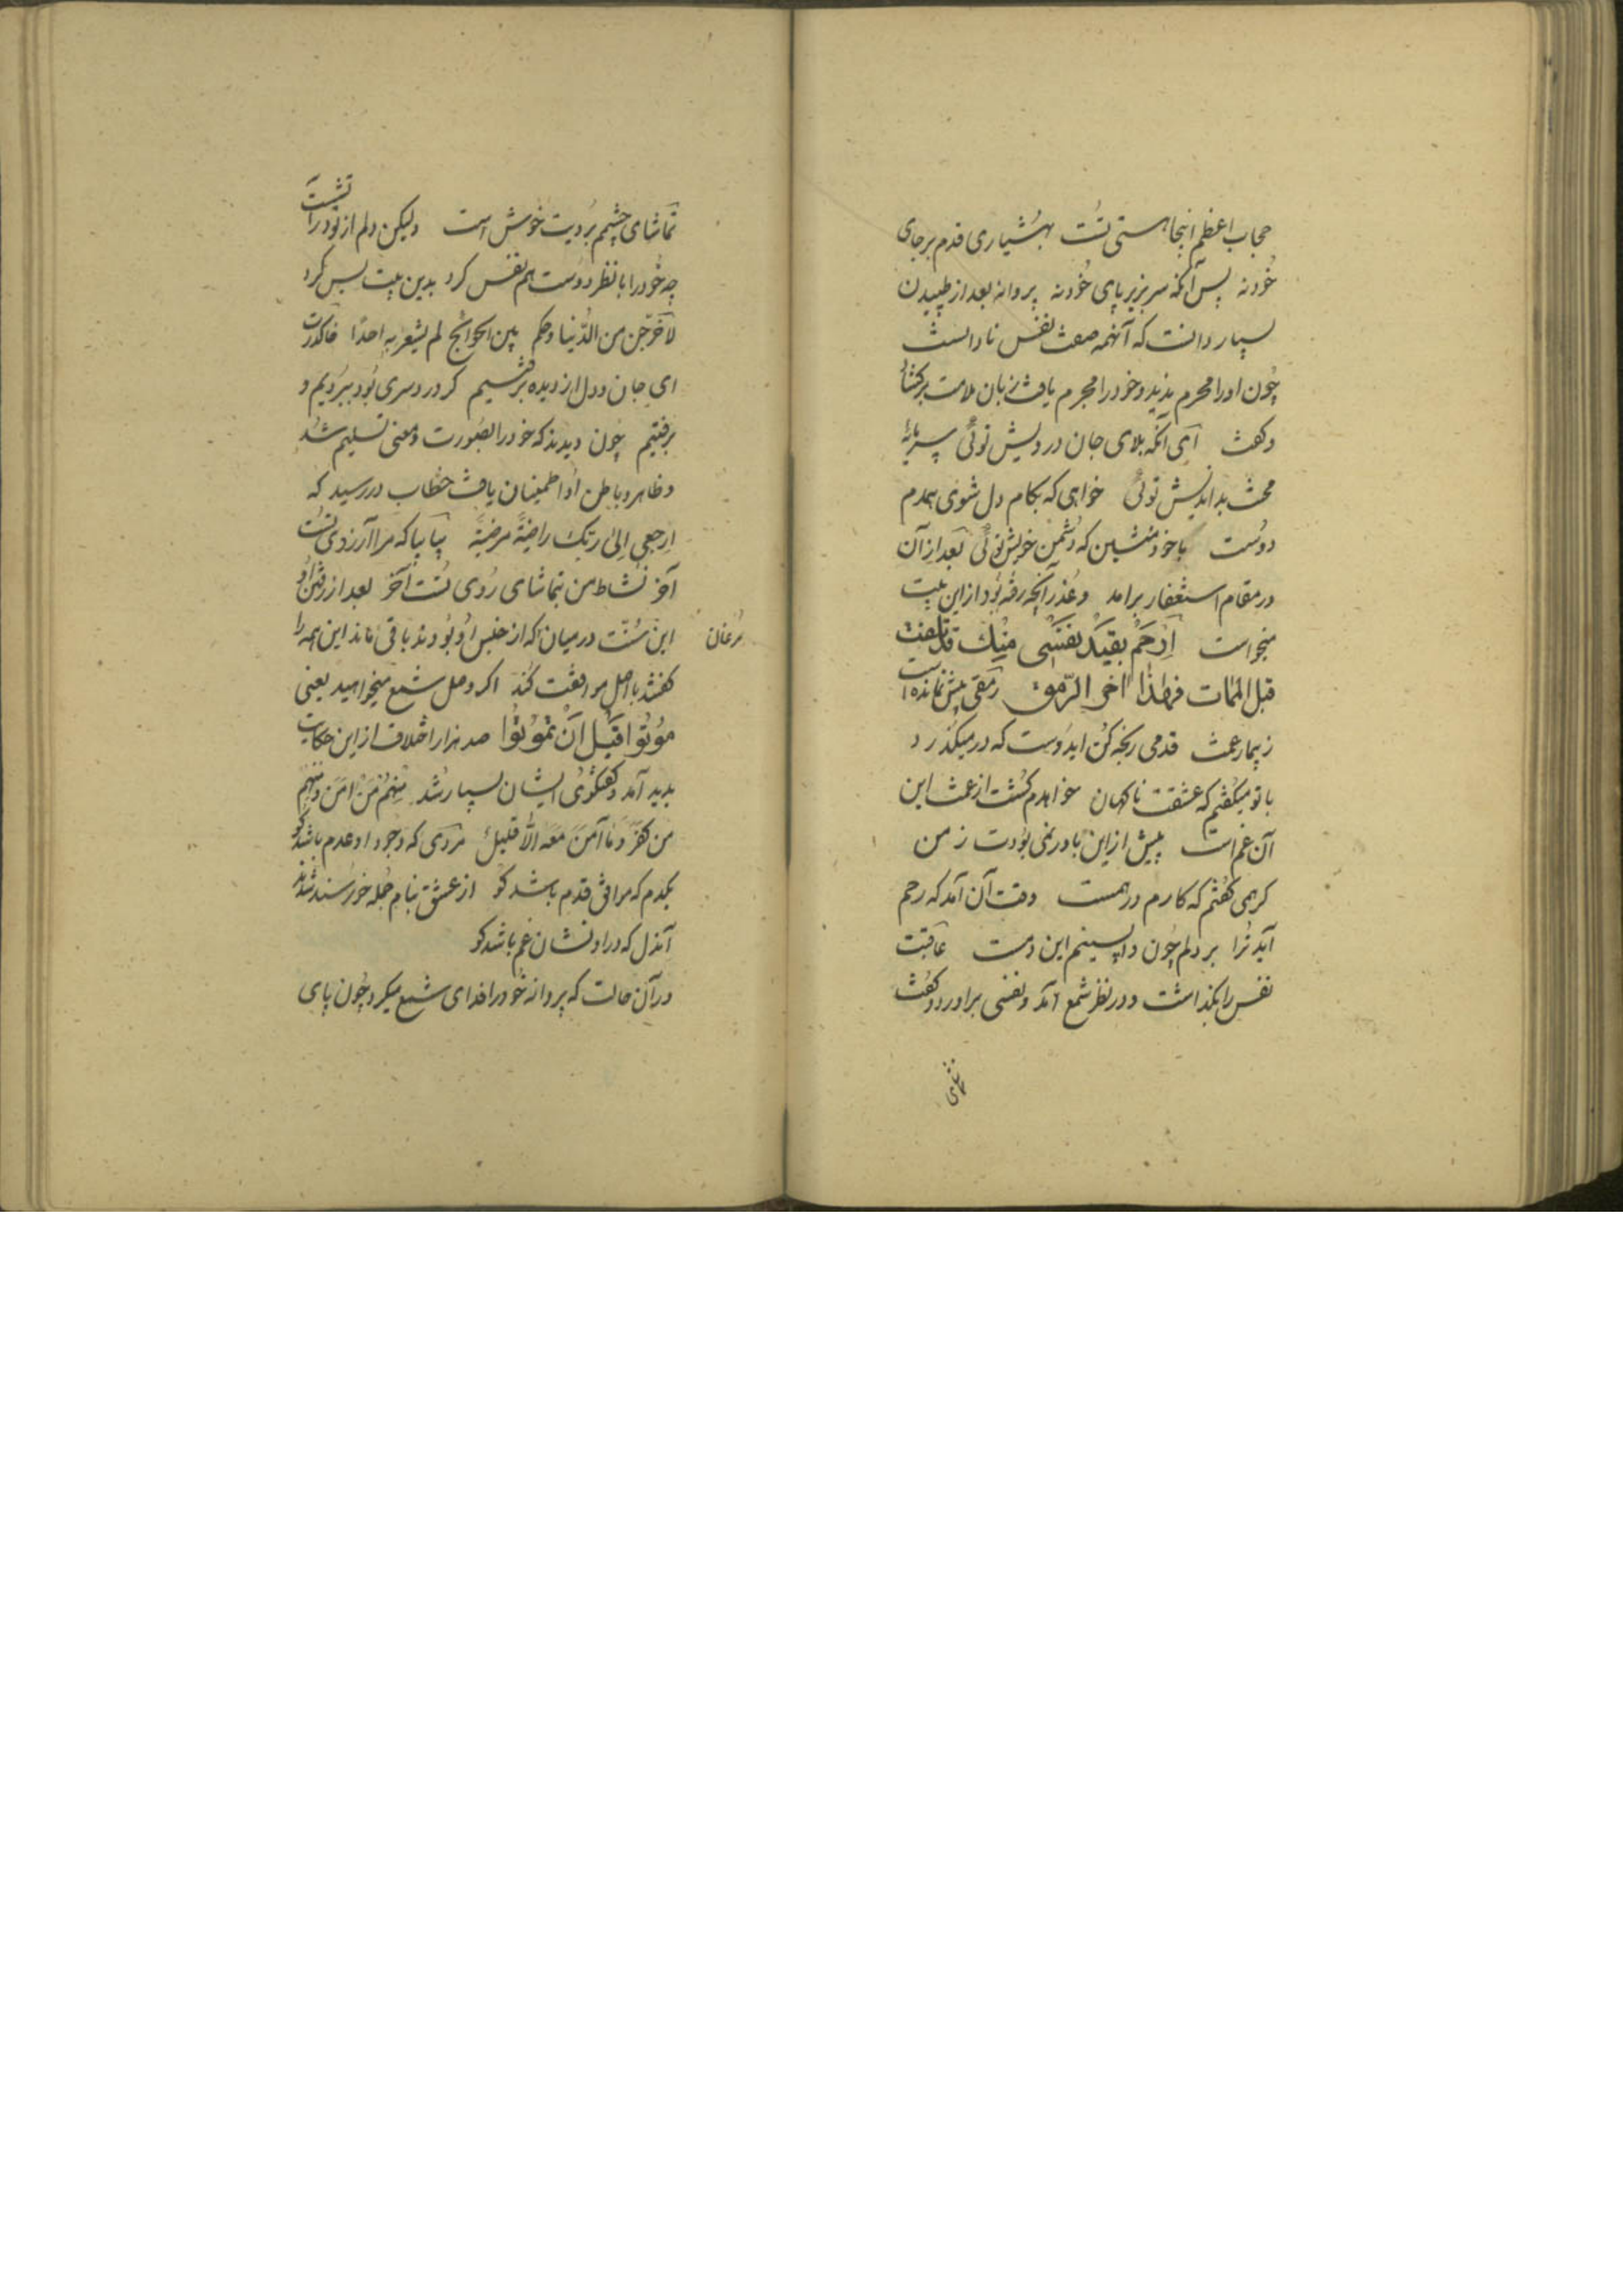 حجاب اعظم اینجا هستی تست بهشیاری قدم بر جای
خود نه پس آنگه سر بزیر پای خود نه پروانه بعد از طپیدن
بسیار دانست که آنهمه صفت نفس نادانست
چون او را محرم ندید و خود را مجرم یافت زبان ملامت برکشاد
و گفت ای آنکه بلای جان درویش توئی سرمایهٔ
محنت بداندیش توئی خواهی که بکام دل شوی همدم
دوست با خود منشین که دشمن خویش توئی بعد از آن
در مقام استغفار برامد و عذر آنچه رفته بود از این بیت
میخواست اِرْحَمْ بقیة نفسی منك قد تلفت
قبل الممات فهذا اخر الرمق رمقی بیش نمانده است
ز بیمار غمت قدمی رنجه کن ایدوست که در میگذرد
با تو میگفتم که عشقت ناگهان خواهدم کشت از غمت این
آن غم است پیش از این باور نمی بودت ز من
گر همی گفتم که کارم درهمست وقت آن آمد که رحم
آید ترا بر دلم چون واپسینم این دمست عاقبت
نفس را بگذاشت و در نظر شمع آمد و نفسی براورد و گفت
تماشای
تماشای چشمم برویت خوش است ولیکن دلم از تو در آتشست
چه خود را با نظر دوست هم نفس کرد بدین بیت بس کرد
لاخرجن من الدنیا وحکم بین الجوانح لم یشعر به احدا
ای جان و دل از دیده برفتیم کرد در دسری بود ببردیم و
برفتیم چون دیدند که خود را بصورت و معنی تسلیم شد
و ظاهر و باطن او اطمینان یافت خطاب در رسید که
ارجعی الی ربك راضیة مرضیة بیا بیا که مرا آرزوی تست
آخر نشاط من بتماشای روی تست آخر بعد از رفتن او
این سنّت در میان مرغان که از جنس او بودند باقی ماند این همه را
گفتند با اصل موافقت کند اکر وصل شمع میخواهید یعنی
مُوتُوا قَبْلَ اَنْ تَمُوتُوا صد هزار اختلاف از این حکایت
بدید آمد و گفتگوی ایشان بسیار شد مِنهُم مَنْ امَنَ و مِنهُم
من کفَرَ وَ ما آمَنَ مَعَهُ الّا قلیل مردی که وجود او عدم باشد کو
یکدم که موافق قدم باشد کو از عشق بنام جمله خورسند شدند
آندل که در او نشان غم باشد کو
در آن حالت که پروانه خود را فدای شمع میکرد چون پای